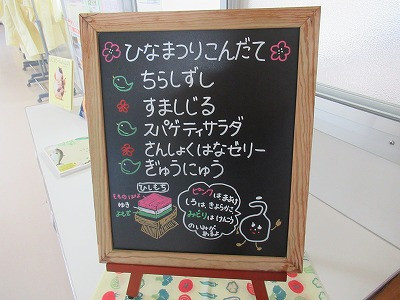 ひなまつりこんだて
ちらしずし
すましじる
スパゲティサラダ
さんしょくはなゼリー
ぎゅうにゅう
ひしもち
もものはな
ゆき
よもぎ
ピンクはまよけ
しろは、きよらかさ
みどりはけんこう
のいみがあるよ